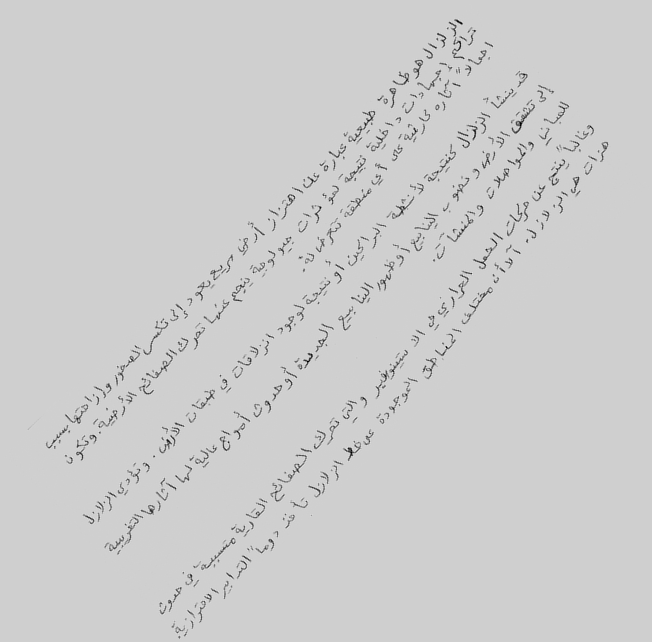 الزلزال هو ظاهرة طبيعية عبارة على اهتزاز أرضي سريع يعود إلى تكسر الصخور وإزاحتها بسبب
تراكم إجهادات داخلية نتيجة لمؤثرات جيولوجية ينجم عنها تحرك الصفائح الأرضية. وتكون
اجمالاً آثاره كارثية على أي منطقة تتعرض له.
قد ينشأ الزلزال كنتيجة لأنشطة البراكين أو نتيجة لوجود انزلاقات في طبقات الأرض. وتؤدي الزلازل
إلى تشقق الأرض و نضوب الينابيع أو ظهور الينابيع الجديدة أو حدوث أمواج عالية لها آثارها التخريبية
للمباني والمواصلات والمنشآت.
وغالباً ينتج عن حركات الحمل الحراري في الاستينوسفير والتي تحرك الصفائح القارية متسببة في حدوث
هزات هي الزلازل. ألا أن مختلف المناطق الموجودة على خط الزلازل تأخذ دوماً التدابير الاحترازية.